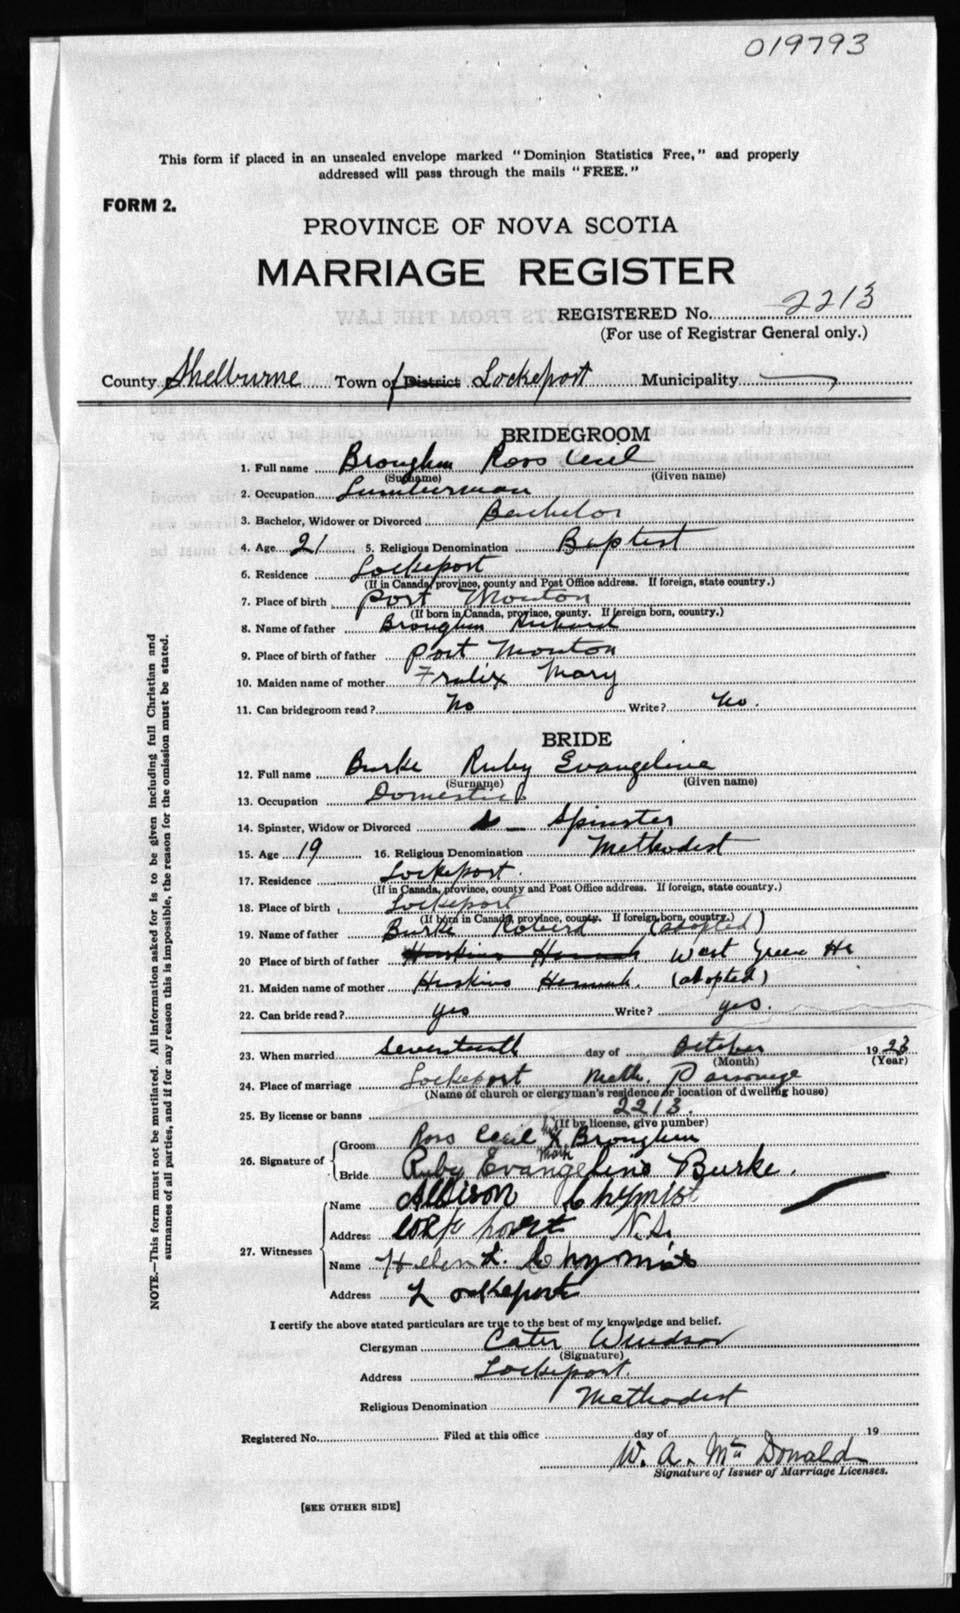 019793
This form if placed in an unsealed envelope marked "Dominion Statistics Free," and properly
addressed will pass through the mails "FREE."
FORM 2.
PROVINCE OF NOVA SCOTIA
MARRIAGE REGISTER
REGISTERED No. 2213
(For use of Registrar General only.)
County Shelburne Town of District Lockeport Municipality
BRIDEGROOM
1. Full name Brougham Ross Cecil
(Surname) (Given name)
2. Occupation Lumberman
3. Bachelor, Widower or Divorced Bachelor
4. Age 21 5. Religious Denomination Baptist
6. Residence Lockeport
(If in Canada, province, county and Post Office address. If foreign, state country.)
7. Place of birth Port Mouton
(If born in Canada, province, county. If foreign born, country.)
8. Name of father Brougham Richard
9. Place of birth of father Port Mouton
10. Maiden name of mother Mary
11. Can bridegroom read? No Write? No.
BRIDE
12. Full name Burke Ruby Evangeline
(Surname) (Given name)
13. Occupation Domestic
14. Spinster, Widow or Divorced Spinster
15. Age 19 16. Religious Denomination Methodist
17. Residence Lockeport.
(If in Canada, province, county and Post Office address. If foreign, state country.)
18. Place of birth Lockeport
(If born in Canada, province, county. If foreign born, country.)
19. Name of father Burke Robert (adopted)
20 Place of birth of father Huskins Hannah West Green Hr
21. Maiden name of mother Huskins Hannah. (adopted)
22. Can bride read? yes Write? yes.
23. When married Seventeenth day of October 1923
(Month) (Year)
24. Place of marriage Lockeport Meth. Parsonage
(Name of church or clergyman's residence or location of dwelling house)
25. By license or banns 2213.
(If by license, give number)
26. Signature of Groom Ross Cecil his X mark Brougham
Bride Ruby Evangeline Burke.
27. Witnesses
Name Allison
Address N.S.
Name Helen L.
Address Lockeport
I certify the above stated particulars are true to the best of my knowledge and belief.
Clergyman Cater Windsor
(Signature)
Address Lockeport.
Religious Denomination Methodist
Registered No. Filed at this office day of 19
W. A. McDonald
Signature of Issuer of Marriage Licenses.
[SEE OTHER SIDE]
NOTE.—This form must not be mutilated. All information asked for is to be given including full Christian and
surnames of all parties, and if for any reason this is impossible, the reason for the omission must be stated.